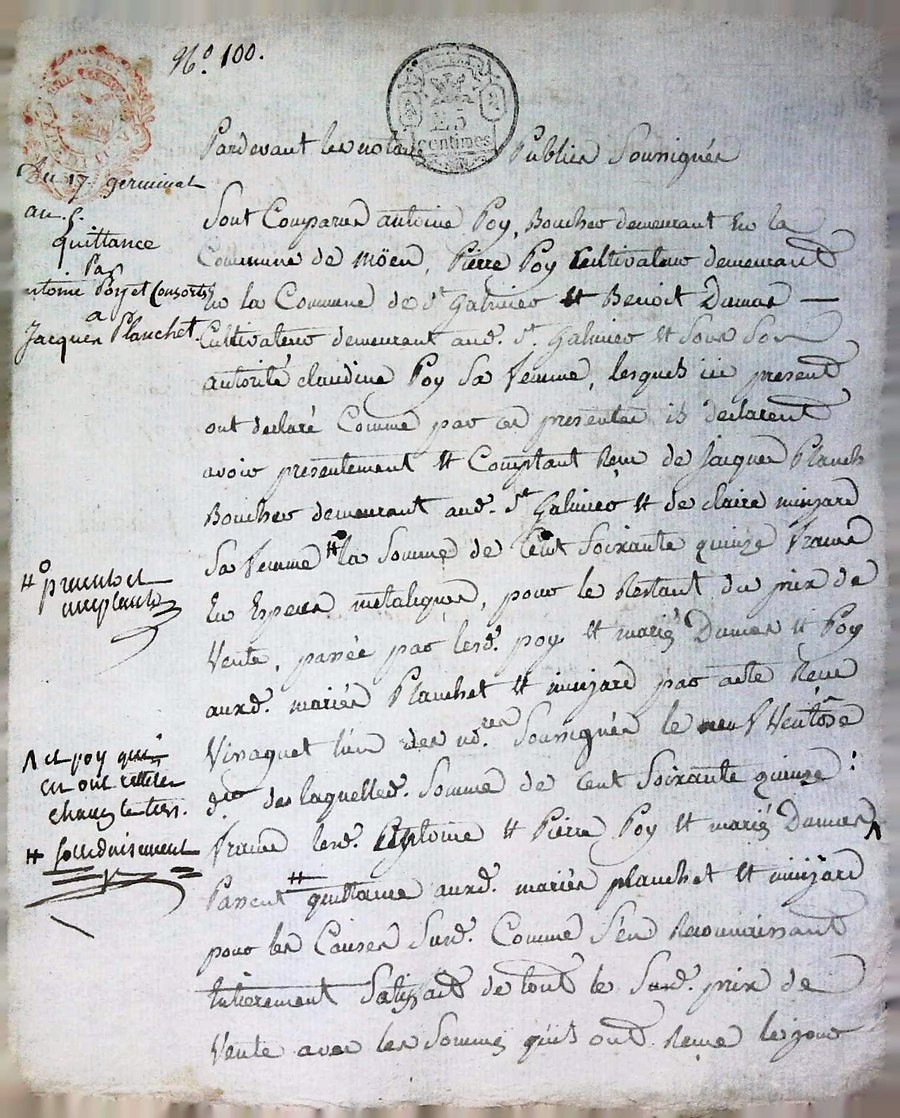 N.º 100.
25
centimes
Pardevant les notaires Publics Soussignés
Du 17 germinal
an 5.
quittance
Par
antoine Poy et Consorts
a
Jacques Planchet.
Sont Comparus antoine Poy, Boucher demeurant En la
Commune de Möen, Pierre Poy Cultivateur demeurant
En la Commune de St Galmier et Benoit Dumas —
Cultivateur demeurant aud. St. Galmier et Sous Son
autorité claudine Poy Sa femme, lesquels ici present
ont declaré Comme par ces presentes ils declarent
avoir presentement et Comptant Reçu de Jacques Planch
Boucher demeurant aud. St Galmier et de claire minjard
Sa femme # la Somme de Cent Soixante quinze francs
En Especes metaliques, pour le Restant du prix de
Vente, passée par lesd. poy et mariés Dumas et Poy
auxd. mariés Planchet et minjard par acte Reçu
Viraquet l'un des nores. Soussignés le neuf Ventôse
der. de laquelle d. Somme de cent Soixante quinze
francs lesd. Antoine et Pierre Poy et mariés Dumas ʌ
Passent # quittance auxd. mariés planchet et minjard
pour les Causes Susd. Comme S'en Reconnaissant
Entierement Satisfaits de tout le Susd. prix de
Vente avec les Sommes qu'ils ont Reçue le jour
# presents et
acceptants
ʌ et poy qui
en ont retiré
chacun le tiers.
# solidairement